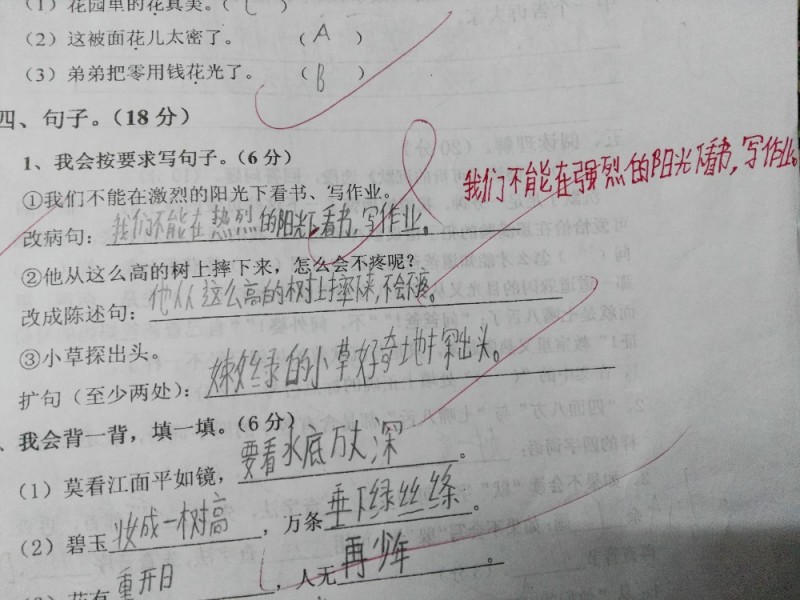 (1) 花园里的花真美。( C )
(2) 这被面花儿太密了。 ( A )
(3) 弟弟把零用钱花光了。 ( B )
四、句子。(18 分)
1、我会按要求写句子。(6 分)
①我们不能在激烈的阳光下看书、写作业。
改病句：我们不能在热烈的阳光下看书，写作业。
我们不能在强烈的阳光下看书，写作业。
②他从这么高的树上摔下来，怎么会不疼呢？
改成陈述句：他从这么高的树上摔下来，不会不疼。
③小草探出头。
扩句（至少两处）：嫩绿的小草好奇地探出头。
、我会背一背，填一填。(6 分)
(1) 莫看江面平如镜，要看水底万丈深。
(2) 碧玉妆成一树高，万条垂下绿丝绦。
花有重开日，人无再少年。